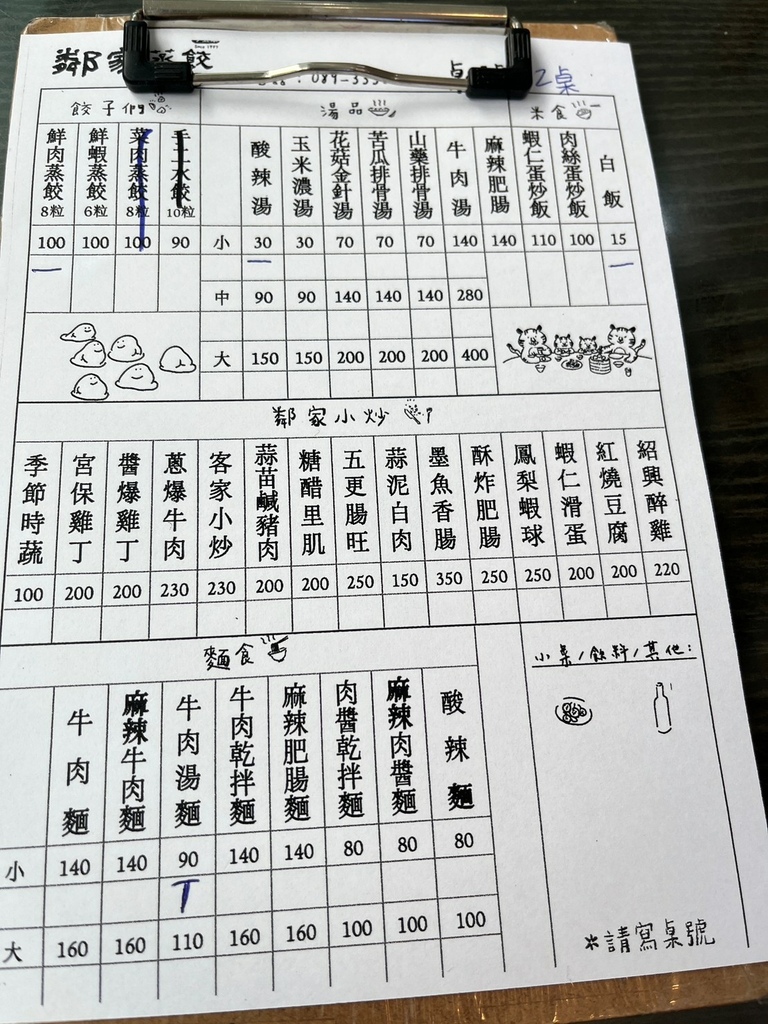 鄰家蒸餃
089-33
2桌
餃子們 湯品 米食
鮮肉蒸餃8粒 鮮蝦蒸餃6粒 菜肉蒸餃8粒 手工水餃10粒 酸辣湯 玉米濃湯 花菇金針湯 苦瓜排骨湯 山藥排骨湯 牛肉湯 麻辣肥腸 蝦仁蛋炒飯 肉絲蛋炒飯 白飯
100 100 100 90 小 30 30 70 70 70 140 140 110 100 15
中 90 90 140 140 140 280
大 150 150 200 200 200 400
鄰家小炒
季節時蔬 宮保雞丁 醬爆雞丁 蔥爆牛肉 客家小炒 蒜苗鹹豬肉 糖醋里肌 五更腸旺 蒜泥白肉 墨魚香腸 酥炸肥腸 鳳梨蝦球 蝦仁滑蛋 紅燒豆腐 紹興醉雞
100 200 200 230 230 200 200 250 150 350 250 250 200 200 220
麵食
小菜/飲料/其他:
牛肉麵 麻辣牛肉麵 牛肉湯麵 牛肉乾拌麵 麻辣肥腸麵 肉醬乾拌麵 麻辣肉醬麵 酸辣麵
小 140 140 90 140 140 80 80 80
大 160 160 110 160 160 100 100 100
*請寫桌號